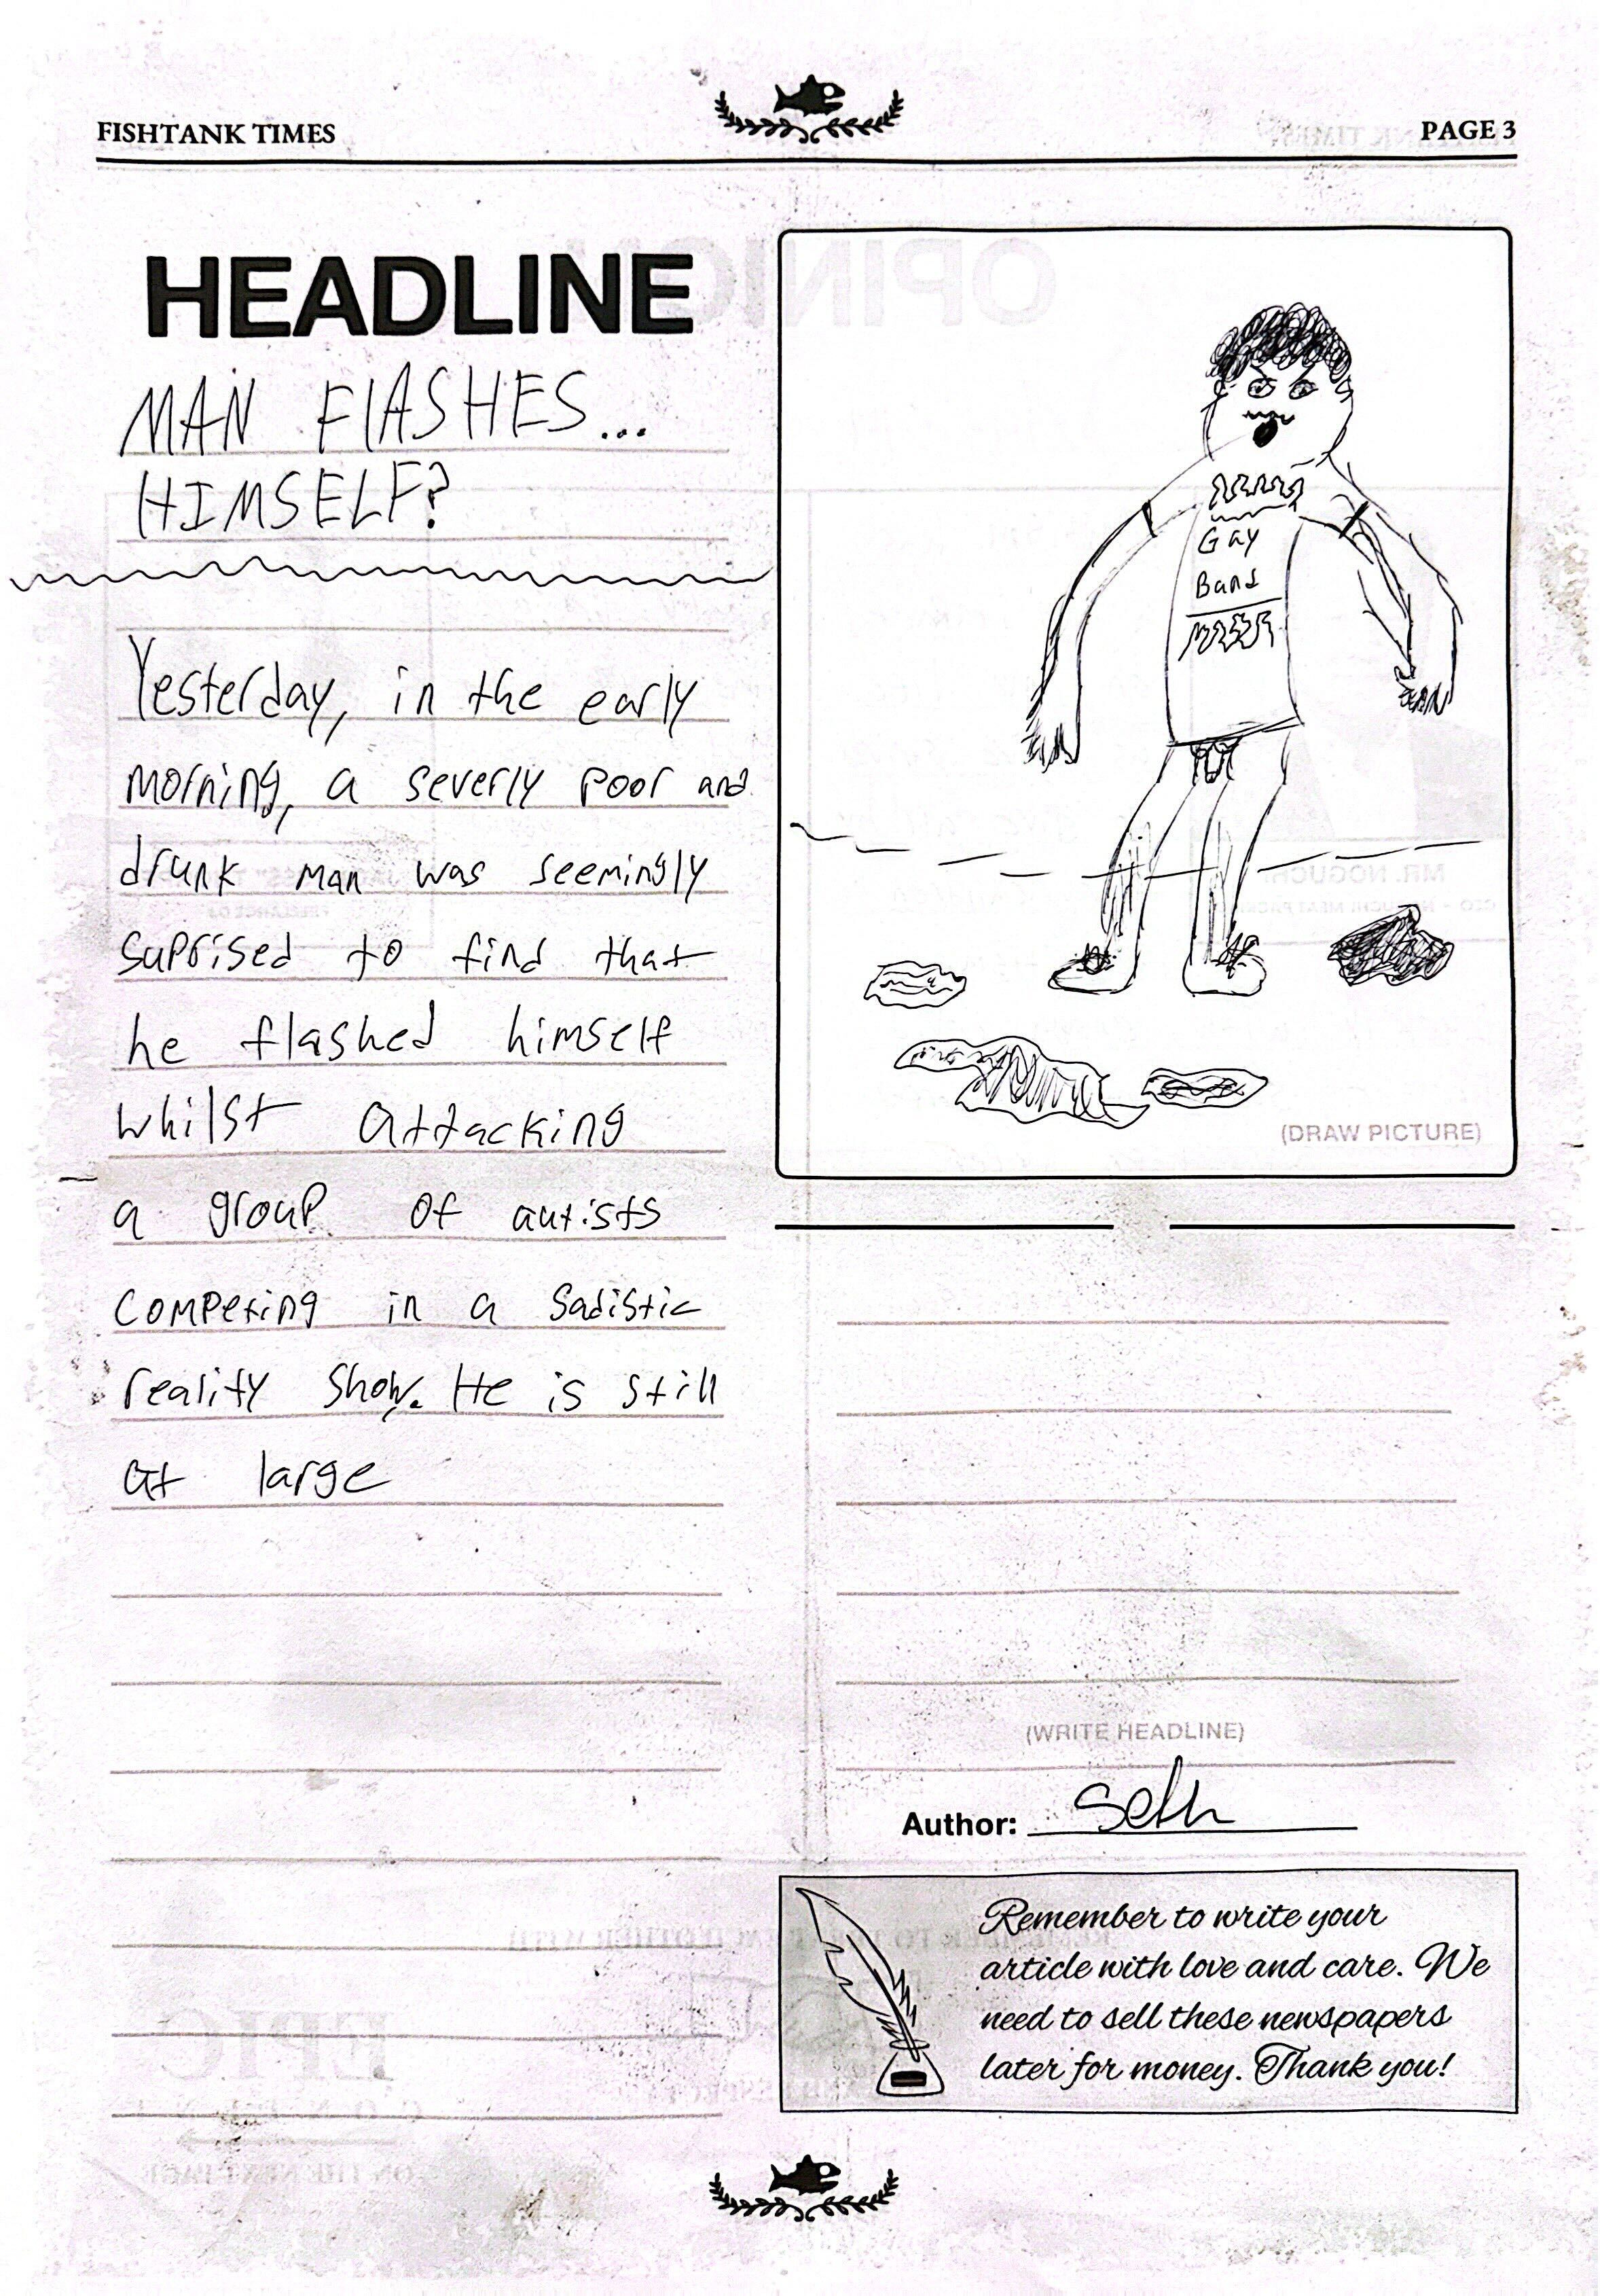 FISHTANK TIMES
PAGE 3
HEADLINE
MAN FlASHES...
HIMSELF?
Yesterday, in the early
morning, a severly poor and
drunk man was seemingly
suprised to find that
he flashed himself
whilst attacking
a group of autists
competing in a sadistic
reality show. He is still
at large
Gay
Band
(DRAW PICTURE)
(WRITE HEADLINE)
Author: Seth
Remember to write your
article with love and care. We
need to sell these newspapers
later for money. Thank you!